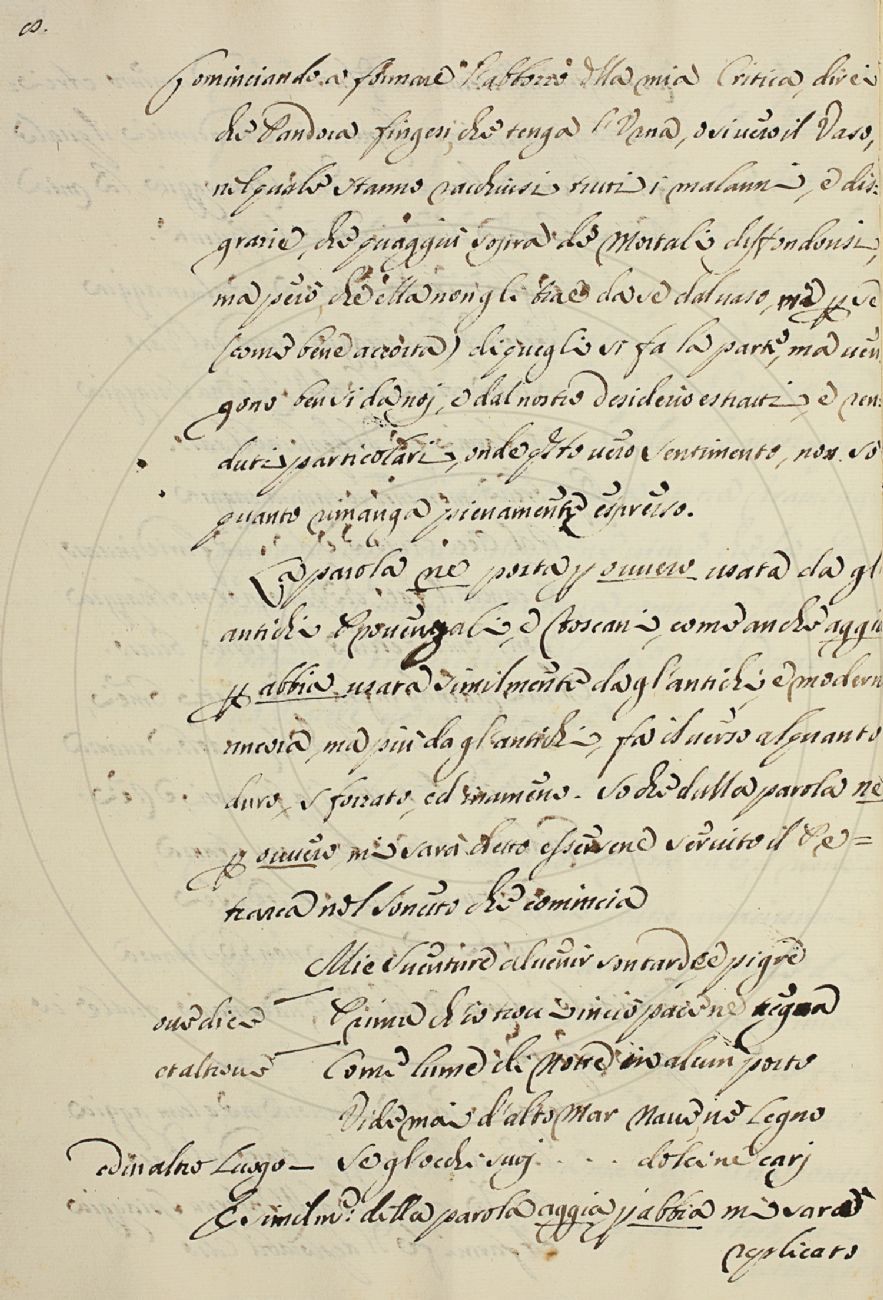 8.
Cominciando a formare l'abbozzo della mia Critica, direi
che Pandora fingesi, che tenga l'Urna, o sivero il Vaso,
nel quale stanno racchiusi tutti i malanni, e dis-
grazie, che quaggiù sopra de Mortali diffondonsi,
ma però, che ella non gli trae da se dal vaso, ne p se
(come bene accorta) di quegli si fa la parte, ma ven
gono bensi da noj, e dal nostro desiderio estratti, e ren-
duti particolari, onde qsto vero sentimento, non so
quanto rimanga pienamente espresso.
La parola ne posta p ovvero usata da gl
antichi Provenzali, e Toscani, come anche aggia
p abbia usata similmente da gl'antichi, e moderni
ancora, ma più da gl'antichi, fa il verso alquanto
duro, sforzato, ed inameno. So che dulla parola ne
p ovvero, mi sarà detto essersene servito il Pe=
trarca nel Sonetto che comincia
Mie Venture al venir son tarde e pigre
ove dice Prima ch'io trovi in ciò pace ne tregua
et altrove Come lume di notte in alcun porto
Vide mai d'alto Mar Nave ne Legno
ed in altro Luogo — Se gl'occhi suoj . . . . dolci ne carj
E similmte: della parola aggia p abbia mi sarà
replicato